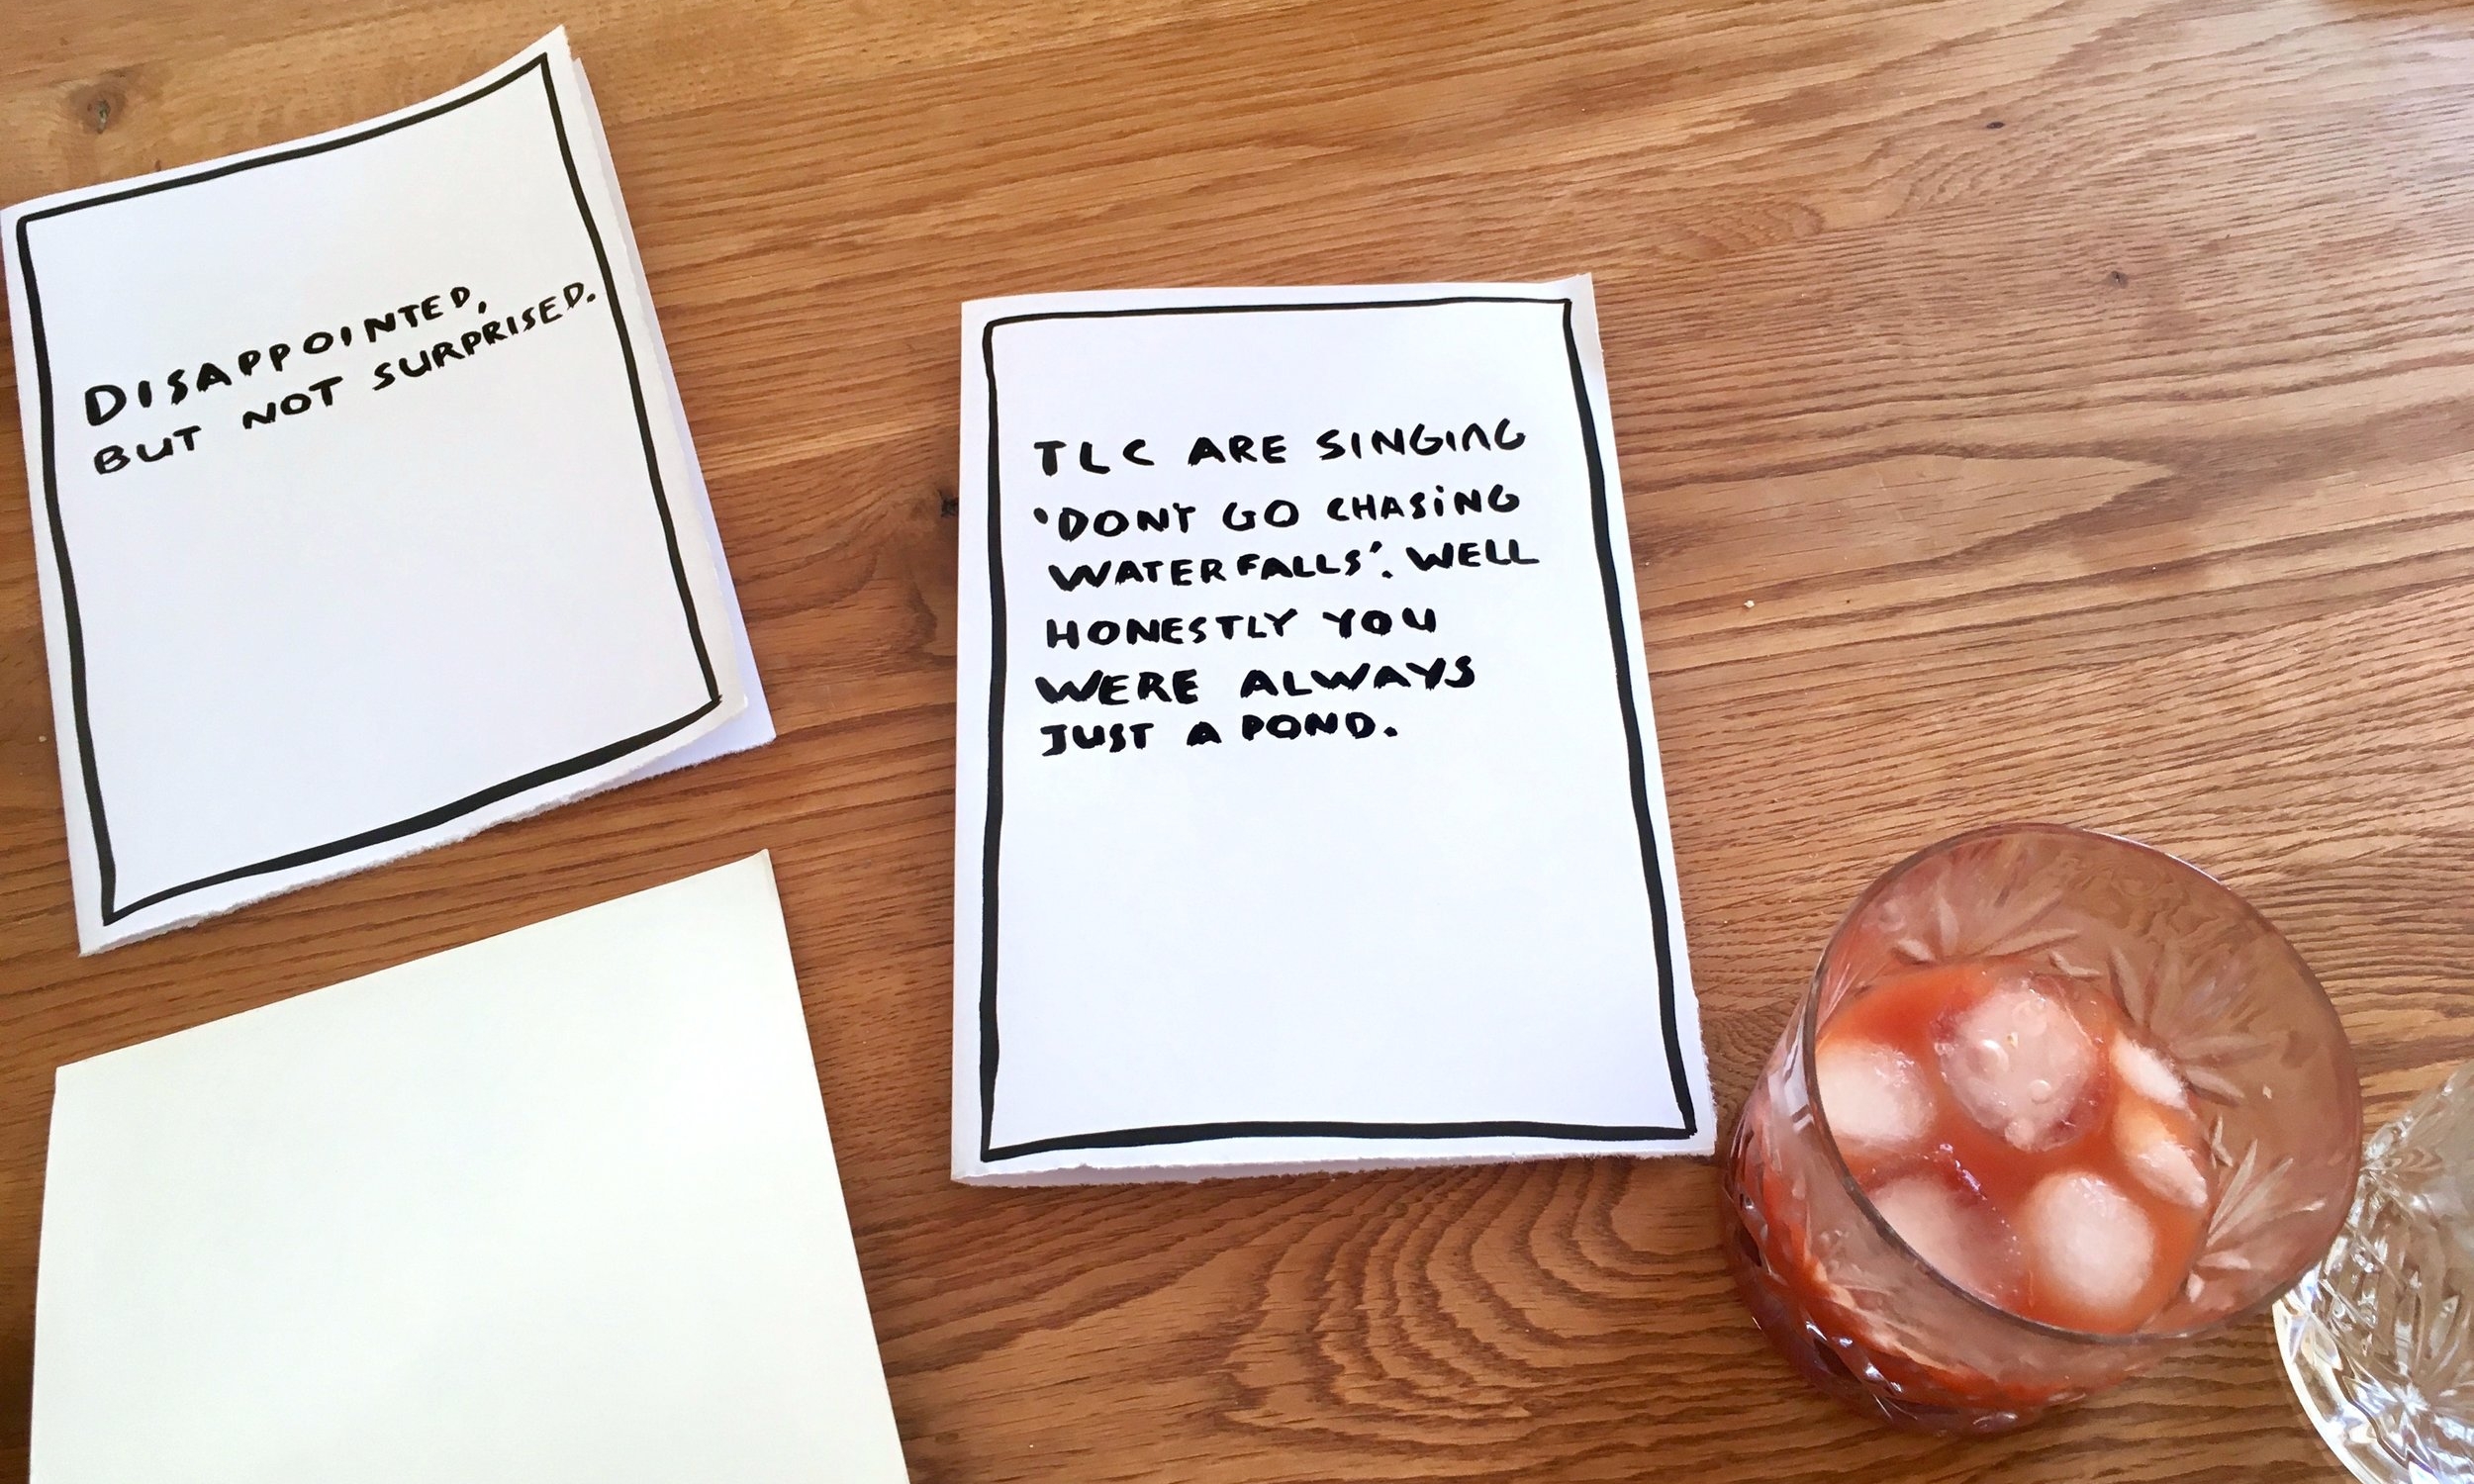 DISAPPOINTED,
BUT NOT SURPRISED.
TLC ARE SINGING
'DON'T GO CHASING
WATERFALLS'. WELL
HONESTLY YOU
WERE ALWAYS
JUST A POND.